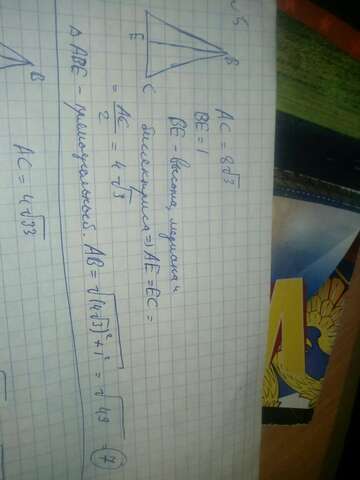 №5
B
E
C
AC = 8√3
BE = 1
BE - высота, медиана и
биссектриса => AE = EC =
= AC/2 = 4√3
△ABE - прямоугольный. AB = √((4√3)² + 1²) = √49 = 7
B
AC = 4√33